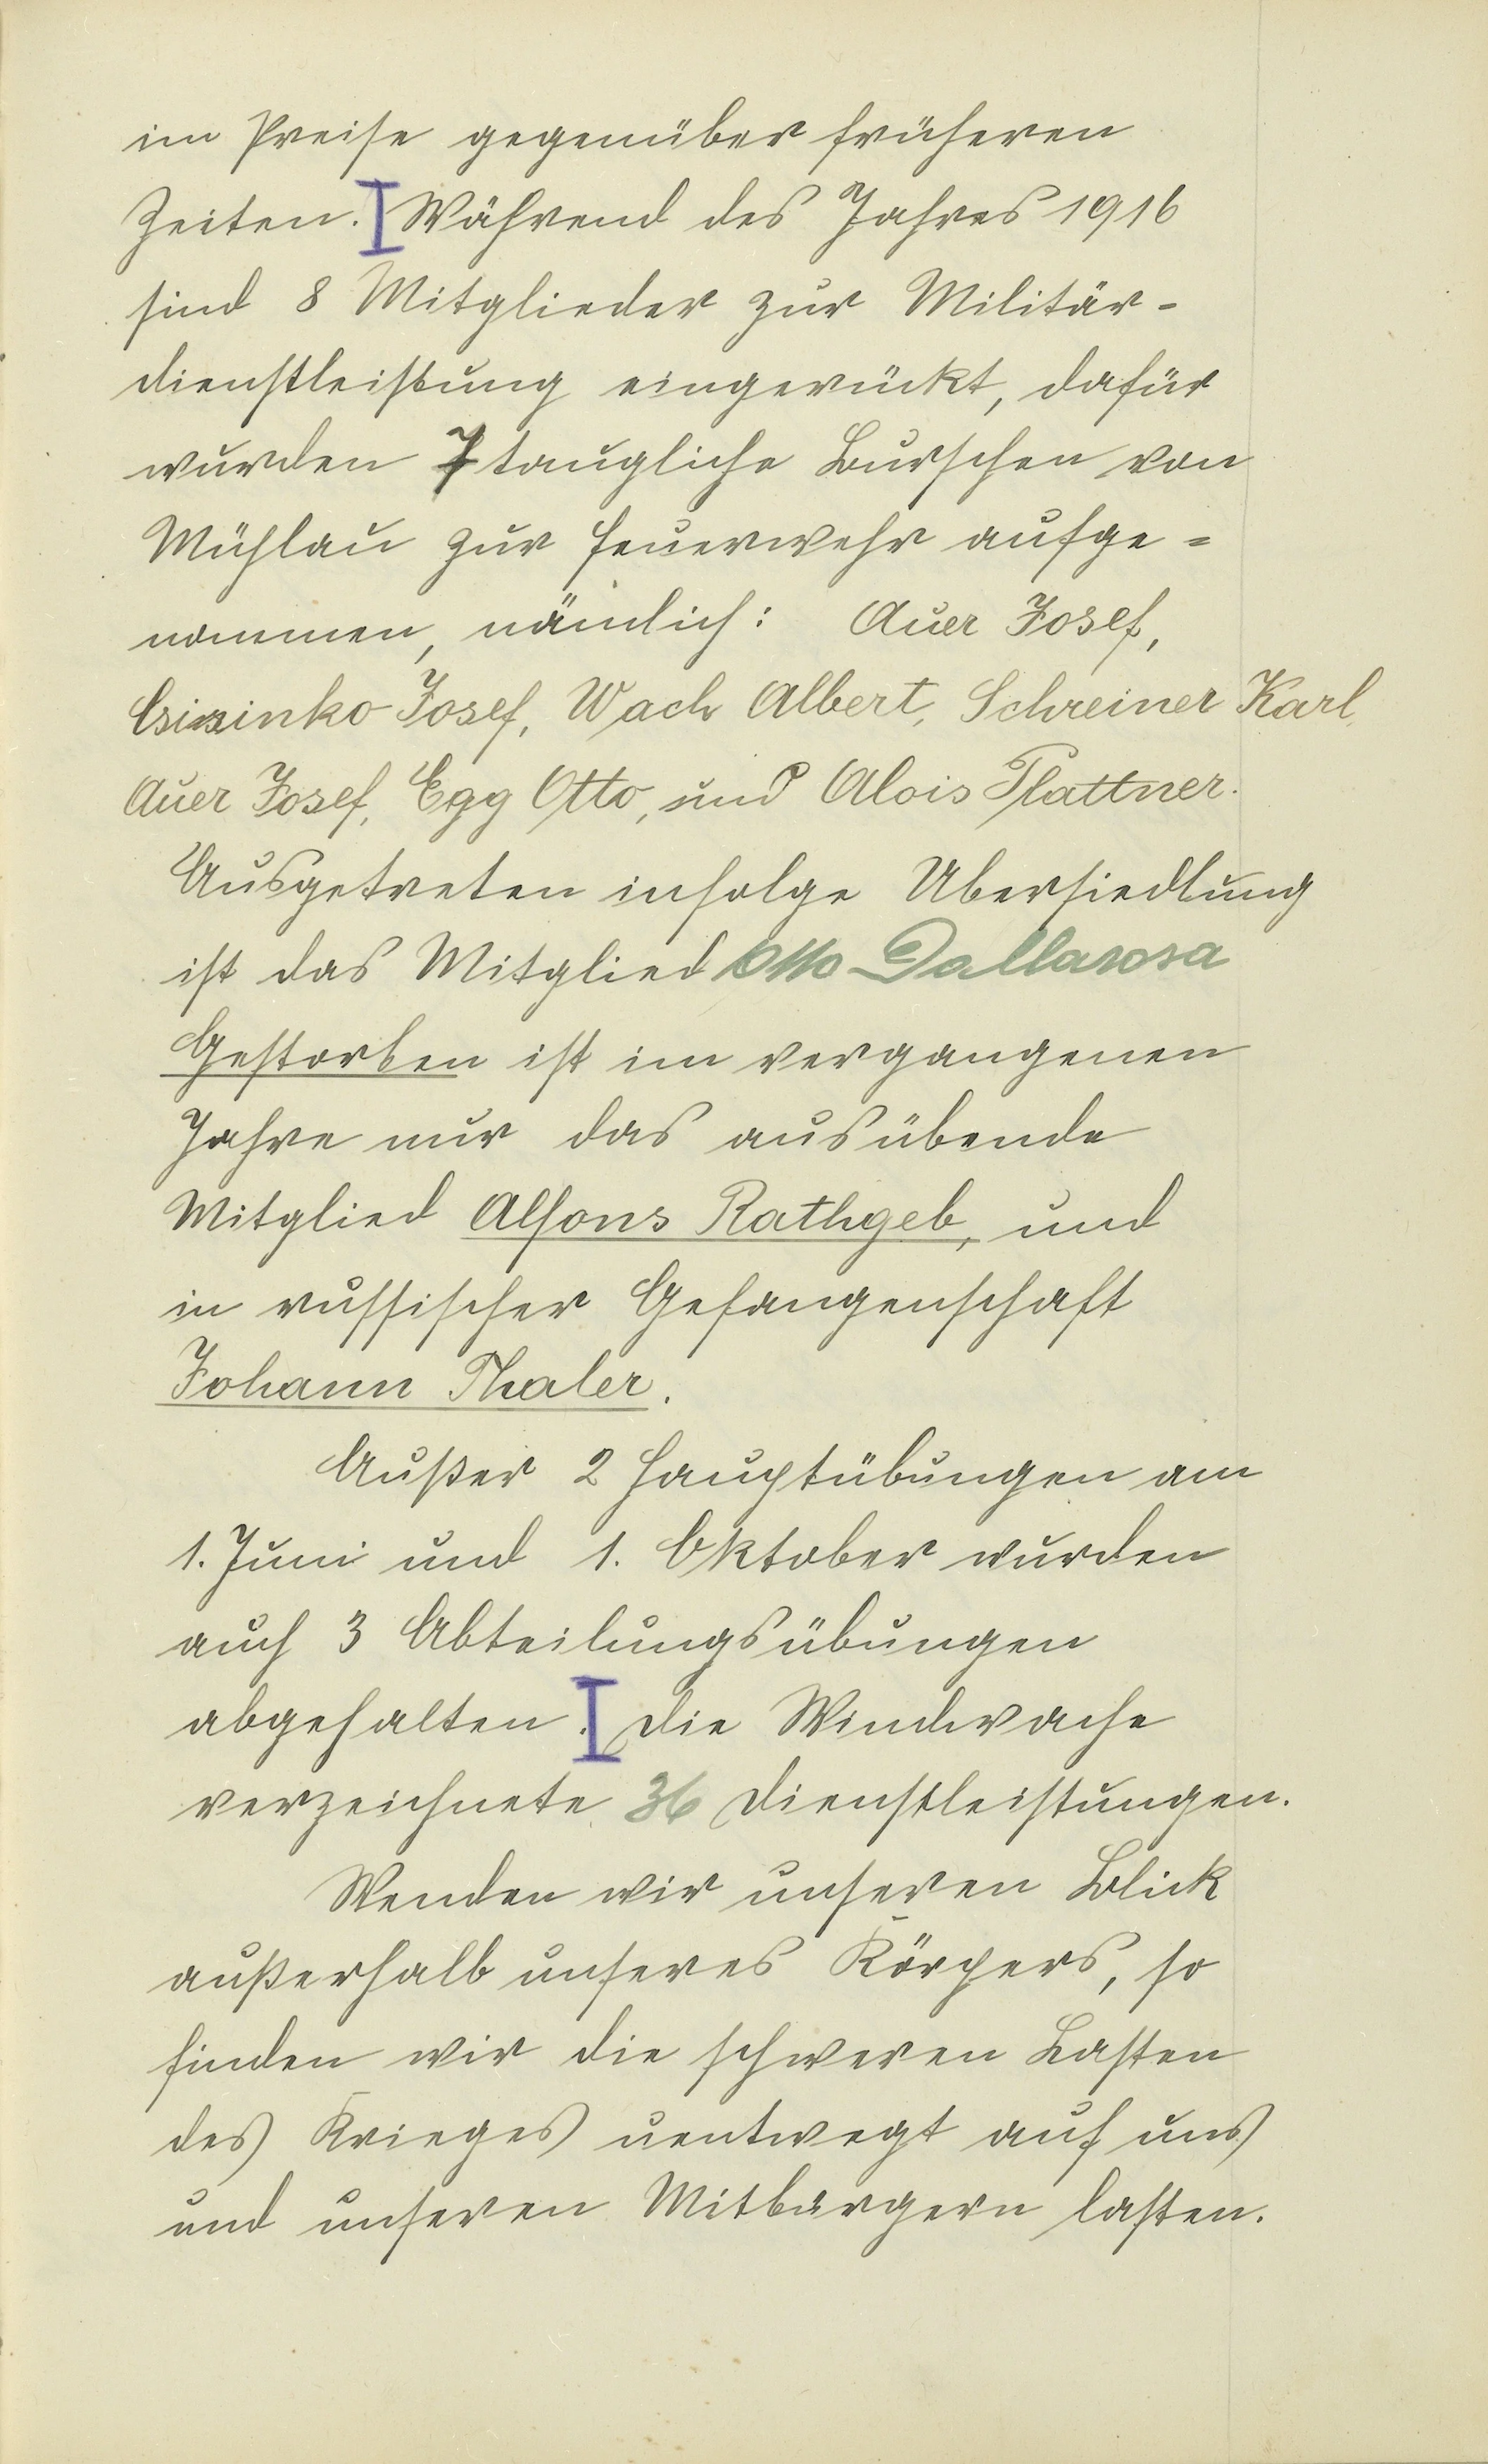 im Preise gegenüber früheren
Zeiten. Während des Jahres 1916
sind 8 Mitglieder zur Militär-
dienstleistung eingerückt, dafür
wurden 7 taugliche Burschen von
Mühlau zur Feuerwehr aufge=
nommen, nämlich: Auer Josef,
Josef, Wach Albert, Schreiner Karl,
Auer Josef, Egg Otto, und Alois Plattner.
Ausgetreten infolge Ubersiedlung
ist das Mitglied Otto Dallarosa
Gestorben ist im vergangenen
Jahre nur das ausübende
Mitglied Alfons Rathgeb, und
in russischer Gefangenschaft
Johann Thaler.
Außer 2 Hauptübungen am
1. Juni und 1. Oktober wurden
auch 3 Abteilungsübungen
abgehalten. Die Windwache
verzeichnete 36 Dienstleistungen.
Wenden wir unseren Blick
außerhalb unseres Körpers, so
finden wir die schweren Lasten
des Krieges uentwegt auf uns
und unseren Mitbürgern lasten.